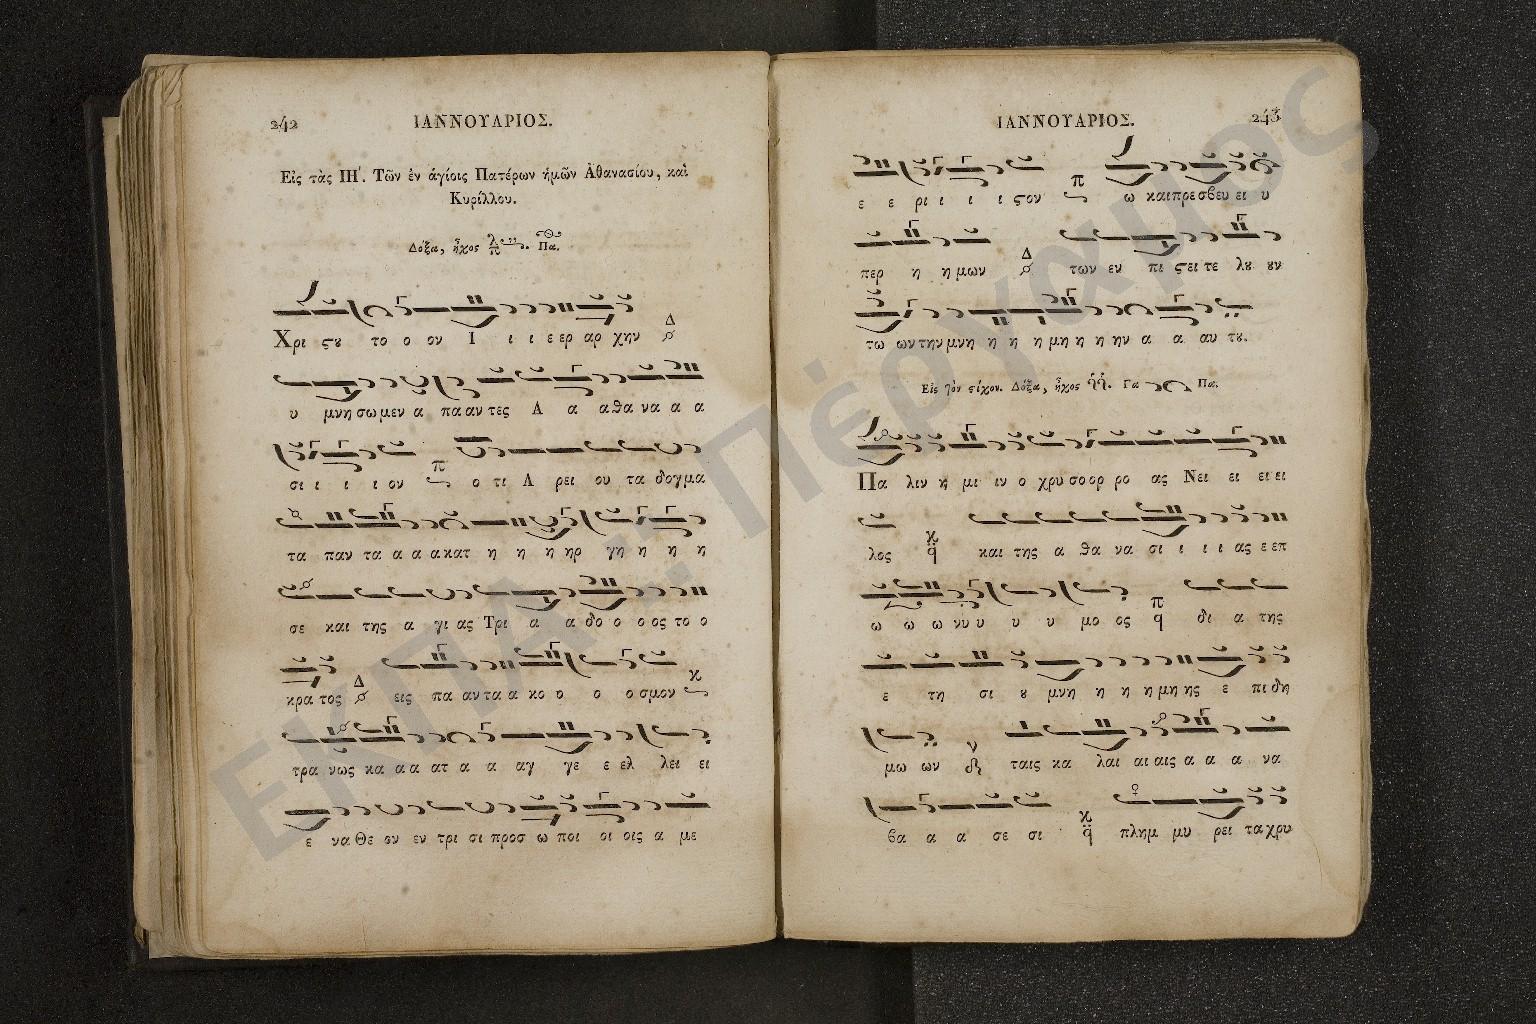 242
ΙΑΝΝΟΥΑΡΙΟΣ.
Εἰς τὰς ΙΗ'. Τῶν ἐν ἁγίοις Πατέρων ἡμῶν Ἀθανασίου, καὶ
Κυρίλλου.
Δόξα, ἦχος Πα.
Χρι ϛου το ο ον Ι ι ι ε ερ αρ χην Δ
υ μνη σω μεν α πα αν τες Α α α θα να α α
σι ι ι ι ον π ο τι Α ρει ου τα δογμα
τα παν τα α α α κατ η η η ηρ γη η η η
σε και της α γι ας Τρι α α δο ο ο ος το ο
κρα τος Δ εις πα αν τα α κο υ ο ο σμον κ
τρα νως κα α α ατ α α αγ γε ε ελ λει ει
ε να Θε ον εν τρι σι προσ ω ποι οι οις α με
ΙΑΝΝΟΥΑΡΙΟΣ.
243
ε ε ρι ι ι ι ϛον π ω και πρε σβευ ει υ
περ η η μων Δ των εν πι ϛει τε λου ουν
τω ων την μνη η η η μη η η ην α α αυ του.
Εἰς τὸν ϛίχον. Δόξα, ἦχος Γα Πα.
Πα λιν η μι ιν ο χρυ σο ορ ρο ας Νει ει ει ει
λος κ και της α θα να σι ι ι ι ας ε επ
ω ω ω νυ υ υ υ μο ος π δι α της
ε τη σι ου μνη η η η μη ης ε πι δη
μω ων ν ταις κα λαι αι αις α α α να
βα α α σε σι κ πλημ μυ ρει τα χρυ
ΕΚΠΑ - Πέργαμος